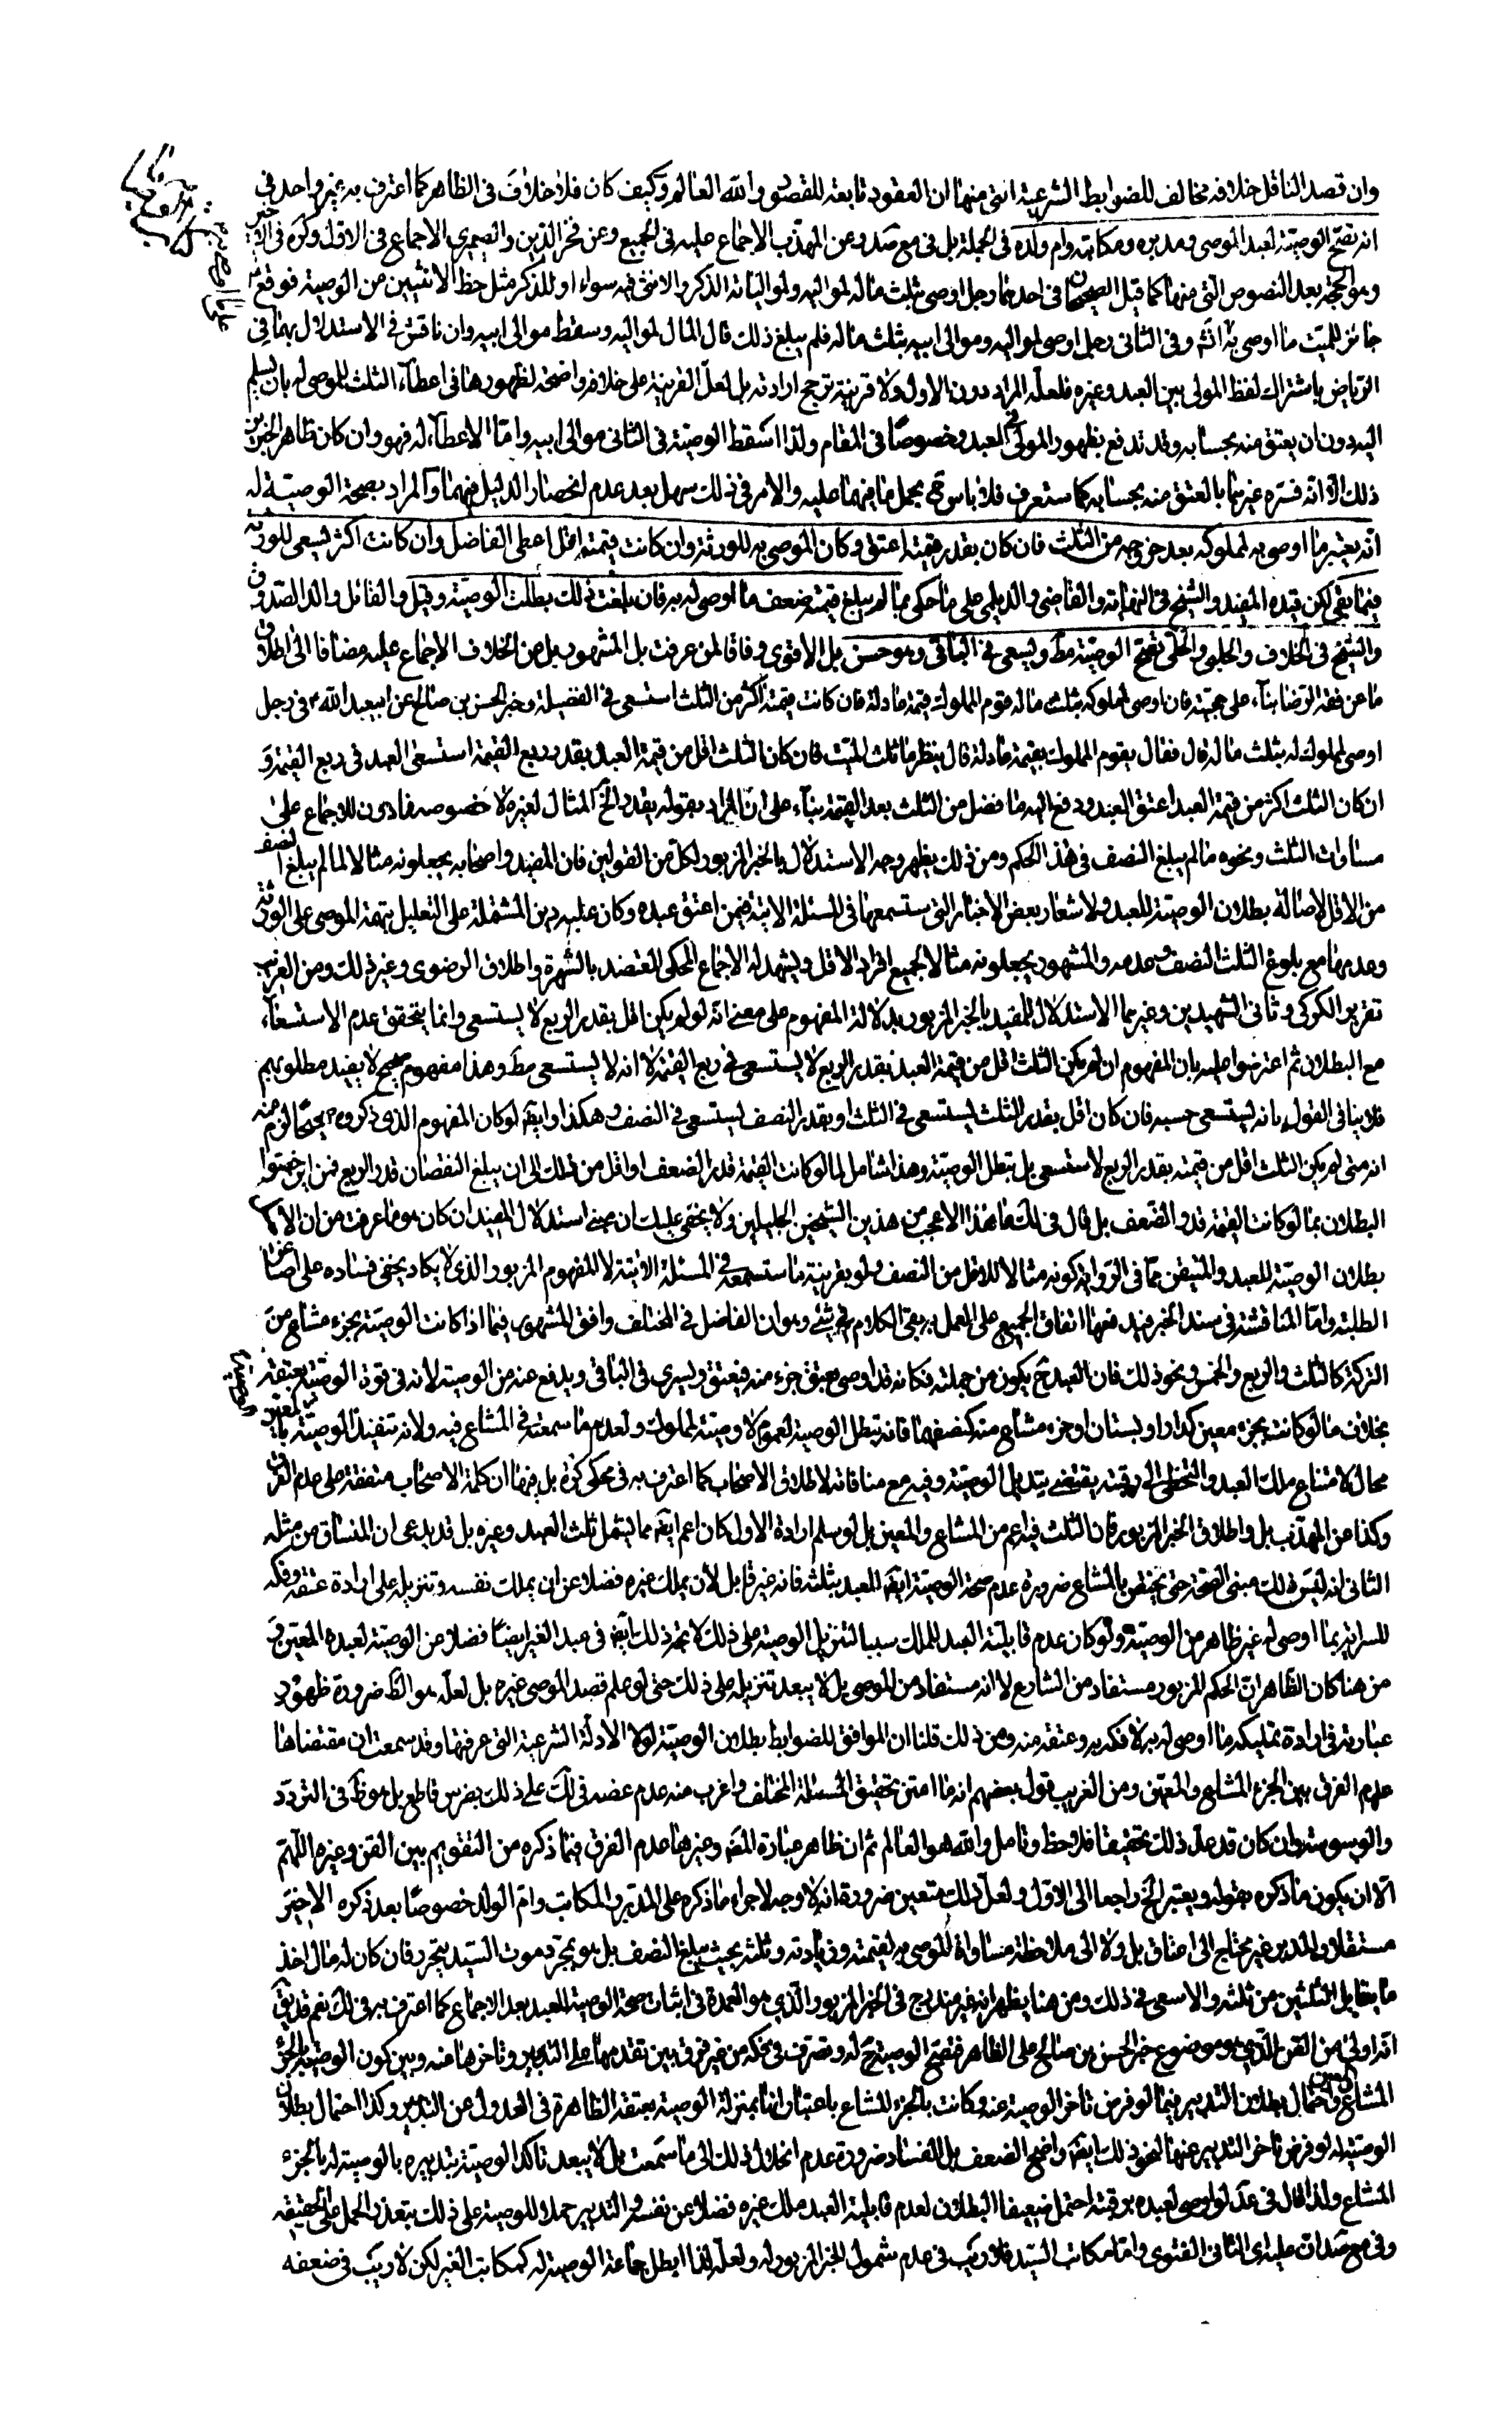 وان قصد الناقل خلافه مخالف للضوابط الشرعية التي منها ان العقود تابعة للقصود والله العالم وكيف كان فلا خلاف في الظاهر كما اعترف به غير واحد في
انه تصح الوصية لعبد الموصي ومدبره ومكاتبه وام ولده في الجملة بل في مع صد وعن المهذب الاجماع عليه في الجميع وعن فخر الدين والصيمري الاجماع في الاول وكره في الاخير
وهو الحجة بعد النصوص التي منها كما قيل الصحيحان في احدهما رجل اوصى بثلث ماله لمواليه ولموالياته الذكر والانثى فيه سواء او للذكر مثل حظ الانثيين من الوصية فوقع
جائز للميت ما اوصى به انش وفي الثاني رجل اوصى لمواليه وموالى ابيه بثلث ماله فلم يبلغ ذلك قال المال لمواليه وسقط موالى ابيه وان ناقش في الاستدلال بهما في
الرياض باشتراك لفظ المولى بين العبد وغيره فلعله المراد دون الاول ولا قرينة ترجح ارادته بل لعل القرينة على خلافه واضحة لظهورها في اعطاء الثلث للموصى له بان يسلم
اليه دون ان يعتق منه بحسابه وقد تدفع بظهور المولى في العبد وخصوصا في المقام ولذا اسقط الوصية في الثاني موالى ابيه واما الاعطاء له فهو وان كان ظاهر الخبرين
ذلك الا انه فسره غيرهما بالعتق منه بحسابه كما ستعرف فلا باس ح بحمل ما فيهما عليه والامر في ذلك سهل بعد عدم انحصار الدليل فيهما والمراد بصحة الوصية له
انه يعتبر ما اوصى به لمملوكه بعد خروجه من الثلث فان كان بقدر قيمته اعتق وكان الموصى به للورثة وان كانت قيمته اقل اعطى الفاضل وان كانت اكثر سعى للورثة
فيما بقى لكن قيده المفيد والشيخ في النهاية والقاضي والديلمي على ما حكى بما لم يبلغ قيمته ضعف ما اوصى له به فان بلغت ذلك بطلت الوصية وقيل والقائل والد الصدوق
والشيخ في الخلاف والحلبي والحلي تصح الوصية مط ويسعى في الباقي وهو حسن بل الاقوى وفاقا لمن عرفت بل المشهور بل عن الخلاف الاجماع عليه مضافا الى اطلاق
ما عن فقه الرضا بناء على حجيته فان اوصى لمملوكه بثلث ماله قوم المملوك قيمة عادلة فان كانت قيمته اكثر من الثلث استسعى في الفضيلة وخبر الحسن بن صالح عن ابيعبد الله ع في رجل
اوصى لمملوك له بثلث ماله قال فقال يقوم المملوك بقيمة عادلة قال ينظر ما ثلث الميت فان كان الثلث اقل من قيمة العبد بقدر ربع القيمة استسعى العبد في ربع القيمة و
ان كان الثلث اكثر من قيمة العبد اعتق العبد ودفع اليه ما فضل من الثلث بعد القيمة بناء على ان المراد بقوله بقدر الخ المثال لغيره لا خصوصه فادون للاجماع على
مساوات الثلث ونحوه ما لم يبلغ النصف في هذا الحكم ومن ذلك يظهر وجه الاستدلال بالخبر المزبور لكل من القولين فان المفيد واصحابه يجعلونه مثالا لما لم يبلغ النصف
من الاقل لاصالة بطلان الوصية للعبد ولاشعار بعض الاخبار التي ستسمعها في المسئلة الاتية فيمن اعتق عبده وكان عليه دين المشتملة على التعليل بتهمة الموصي على الورثة
وعدمها مع بلوغ الثلث النصف وعدمه والمشهور يجعلونه مثالا لجميع افراد الاقل ويشهد له الاجماع المحكي المعتضد بالشهرة واطلاق الرضوي وغير ذلك ومن الغريب
تقرير الكركي وثاني الشهيدين وغيرهما الاستدلال للمفيد بالخبر المزبور بدلالة المفهوم على معنى انه لو لم يكن اقل بقدر الربع لا يستسعى وانما يتحقق عدم الاستسعاء
مع البطلان ثم اعترضوا عليه بان المفهوم ان لم يكن الثلث اقل من قيمة العبد بقدر الربع لا يستسعى في ربع القيمة لا انه لا يستسعى مط وهذا مفهوم صحيح لا يفيد مطلوبهم
فلا ينافي القول بانه يستسعى حسبه فان كان اقل بقدر الثلث يستسعى في الثلث او بقدر النصف يستسعى في النصف وهكذا وايضا لو كان المفهوم الذي ذكروه صحيحا لزم منه
انه متى لم يكن الثلث اقل من قيمته بقدر الربع لا يستسعى بل تبطل الوصية وهذا شامل لما لو كانت القيمة قدر الضعف او اقل من ذلك الى ان يبلغ النقصان قدر الربع فمن اين خصوا
البطلان بما لو كانت القيمة قدر الضعف بل قال في لك ما هذا الا عجيب من هذين الشيخين الجليلين ولا يخفى عليك ان مبنى استدلال المفيد ان كان هو ما عرفت من ان الاصل
بطلان الوصية للعبد والمتيقن مما في الرواية كونه مثالا للاقل من النصف ولو بقرينة ما ستسمعه في المسئلة الاتية لا للمفهوم المزبور الذي لا يكاد يخفى فساده على اصاغر
الطلبة واما المناقشة في سند الخبر فيدفعها اتفاق الجميع على العمل به بقى الكلام في شئ وهو ان الفاضل في المختلف وافق المشهور فيما اذا كانت الوصية بجزء مشاع من
التركة كالثلث والربع والخمس ونحو ذلك فان العبد ح يكون من جملته فكانه قد اوصى بعتق جزء منه فيعتق ويسري في الباقي ويدفع عنه من الوصية لانه في قوة الوصية بعتقه
بخلاف ما لو كانت بجزء معين كدار او بستان او جزء مشاع منه كنصفهما فانه تبطل الوصية لعموم لا وصية لمملوك ولعدم ما سمعته في المشاع فيه ولانه تنفيذ الوصية بالمعين
محال لامتناع ملك العبد والتخطي الى رقبته يقتضي تبديل الوصية وفيه مع منافاته لاطلاق الاصحاب كما اعترف به في محكي كره بل فيها ان كلمة الاصحاب متفقة على عدم الفرق
وكذا عن المهذب بل واطلاق الخبر المزبور فان الثلث فيه اعم من المشاع والمعين بل لو سلم ارادة الاول كان اعم ايضا مما يشمل ثلث العبد وغيره بل قد يدعى ان المنساق من مثله
الثاني انه ليس ذلك مبنى الصحة حتى يختص بالمشاع ضرورة عدم صحة الوصية ايضا للعبد بثلثه فانه غير قابل لان يملك غيره فضلا عن ان يملك نفسه وتنزيله على ارادة عتقه وفكه
للسراية بما اوصى له غير ظاهر من الوصية ولو كان عدم قابلية العبد للملك سببا لتنزيل الوصية على ذلك لاتجه ذلك ايضا في عبد الغير ايضا فضلا عن الوصية لعبده المعين و
من هنا كان الظاهر ان الحكم المزبور مستفاد من الشارع لا انه مستفاد من الموصي بل لا يبعد تنزيله على ذلك حتى لو علم قصد الموصي غيره بل لعله هو الظ ضرورة ظهور
عبارته في ارادة تمليكه ما اوصى له به لا فكه به وعتقه منه ومن ذلك قلنا ان الموافق للضوابط بطلان الوصية لولا الادلة الشرعية التي عرفتها وقد سمعت ان مقتضاها
عدم الفرق بين الجزء المشاع والمعين ومن الغريب قول بعضهم انه ما امتن تحقيق المسئلة المختلف واغرب منه عدم عضه في لك على ذلك بضرس قاطع بل هو ظ في التردد
والوسوسة وان كان قد علل ذلك تحقيقا فلاحظ وتامل والله هو العالم ثم ان ظاهر عبارة المص وغيرها عدم الفرق فيما ذكره من التقويم بين القن وغيره اللهم
الا ان يكون ما ذكره بقوله ويعتبر الخ راجعا الى الاول ولعل ذلك متعين ضرورة انه لا وجه لاجراء ما ذكره على المدبر والمكاتب وام الولد خصوصا بعد ذكره الاخير
مستقلا والمدبر غير محتاج الى اعتاق بل ولا الى ملاحظة مساواة الموصى به لقيمته وزيادته وثلثه بحيث يبلغ النصف بل هو بمجرد موت السيد يتحرر فان كان له مال اخذ
ما يقابل الثلثين من ثلثه والا سعى في ذلك ومن هنا يظهر انه غير مندرج في الخبر المزبور الذي هو العمدة في اثبات صحة الوصية للعبد بعد الاجماع كما اعترف به في لك نعم قد يق
انه اولى من القن الذي هو موضوع خبر الحسن بن صالح على الظاهر فتصح الوصية ح له وتصرف في فكه من غير فرق بين تقدمها على التدبير وتاخرها عنه وبين كون الوصية بالجزء
المشاع والمعين واحتمال بطلان التدبير فيما لو فرض تاخر الوصية عنه وكانت بالجزء المشاع باعتبار انها بمنزلة الوصية بعتقه الظاهرة في العدول عن التدبير وكذا احتمال بطلان
الوصية له لو فرض تاخر التدبير عنها لنحو ذلك ايضا واضح الضعف بل الفساد ضرورة عدم انحلال ذلك الى ما سمعت بل لا يبعد تاكد الوصية بتدبيره بالوصية له بالجزء
المشاع ولذا قال في عد لو اوصى لعبده برقبته احتمل ضعيفا البطلان لعدم قابلية العبد ملك غيره فضلا عن نفسه والتدبير حملا للوصية على ذلك بتعذر الحمل على الحقيقة
وفي مع صد ان عليه اى الثاني الفتوى واما مكاتب السيد فلا ريب في عدم شمول الخبر المزبور له ولعله لذا ابطل جماعة الوصية له كمكاتب الغير لكن لا ريب في ضعفه